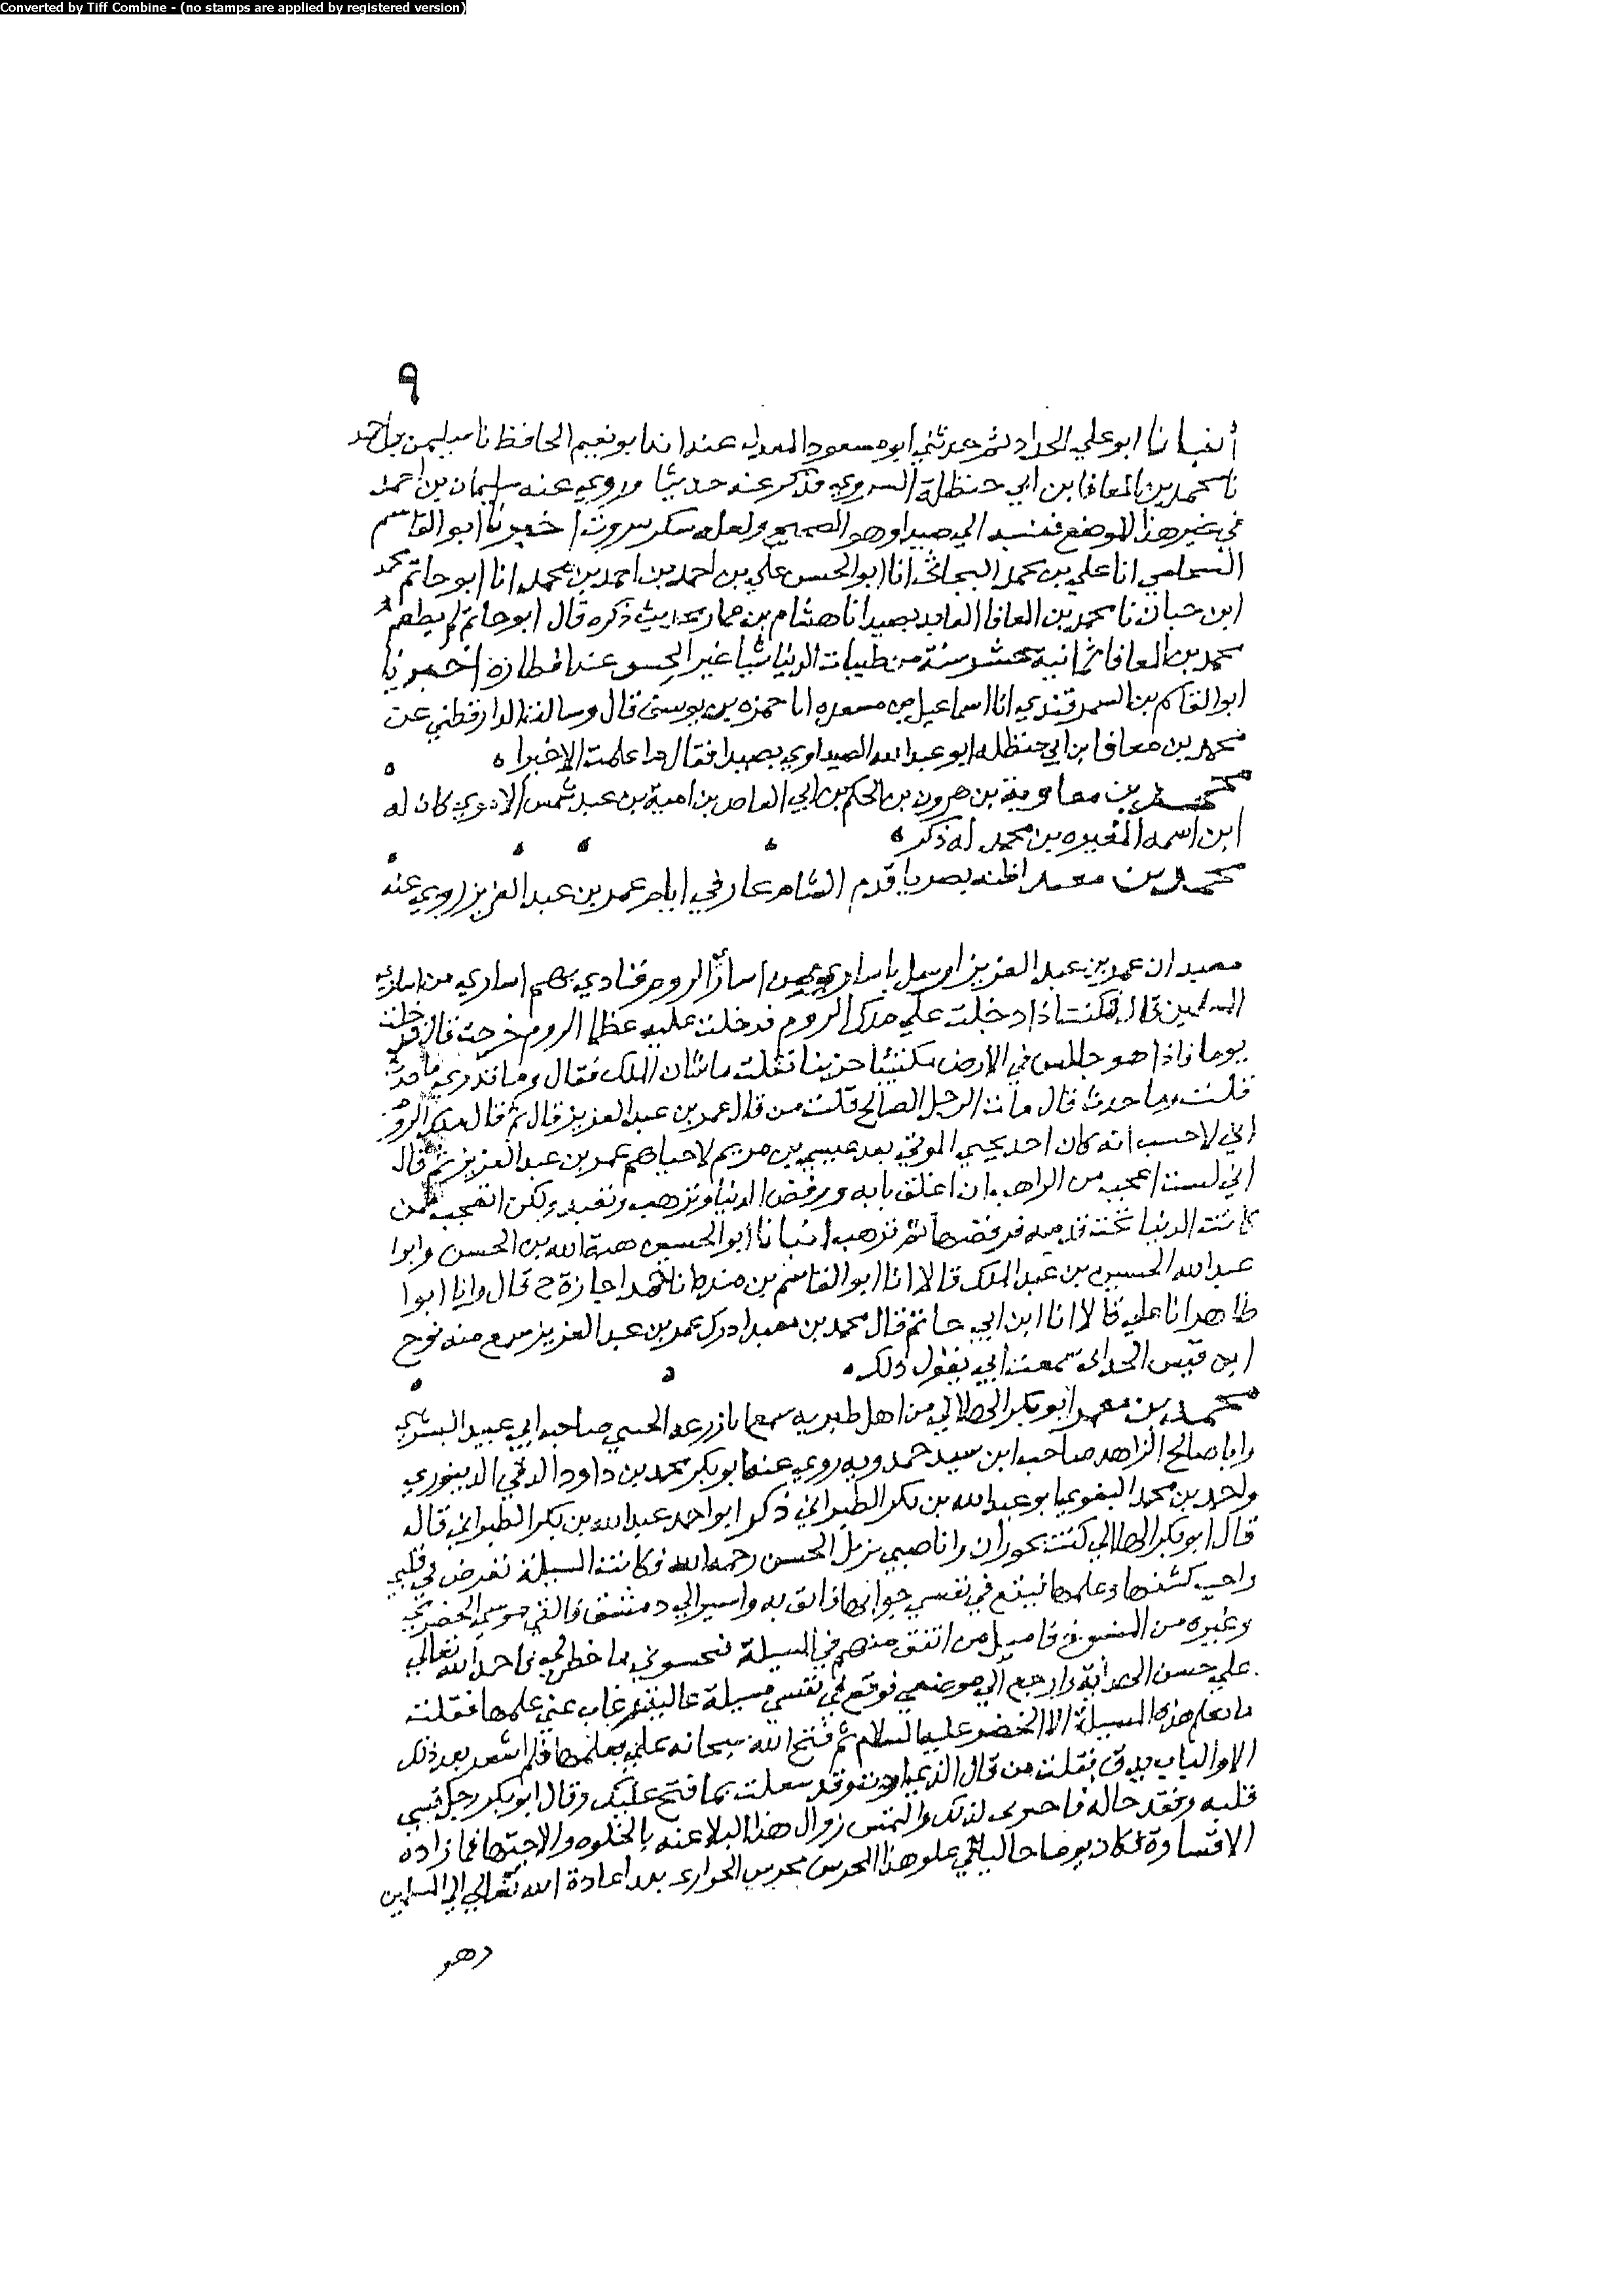 Converted by Tiff Combine - (no stamps are applied by registered version)
٩
أنبانا ابو علي الحداد ثم حدثني ابو مسعود المعدل عنه انا ابو نعيم الحافظ نا سليمن بن احمد
نا محمد بن المعافا بن ابي حنظلة السروي فذكر عنه حديثا وروي عنه سليمان بن احمد
في غير هذا الموضع فنسبه الي صيدا وهو الصحيح ولعله سكن بيروت اخبرنا ابو القاسم
الشحامي انا علي بن محمد البحاثي انا ابو الحسن علي بن احمد بن احمد بن محمد انا ابو حاتم محمد
ابن حبان نا محمد بن المعافا العابد بصيدا نا هشام بن عمار بحديث ذكره قال ابو حاتم لم يطعم
محمد بن المعافا ثمانية عشر سنة من طيبات الدنيا شيا غير الحسو عند افطاره اخبرنا
ابو القاسم بن السمرقندي انا اسماعيل بن مسعده انا حمزه بن يوسف قال وسالت الدارقطني عن
محمد بن معافا بن ابي حنظله ابو عبد الله الصيداوي بصيدا فقال ما علمت الا خيرا ه
محمد بن معاوية بن هرون بن الحكم بن ابي العاص بن امية بن عبد شمس الاموي كان له
ابن اسمه المغيره بن محمد له ذكر ه
محمد بن معبد اظنه بصريا قدم الشام غاز في ايام عمر بن عبد العزيز روي عنه
معبد ان عمر بن عبد العزيز ارسل باساري من اساري الروم فنادي بهم اساري من اساري
المسلمين قال فكنت اذا دخلت علي ملك الروم فدخلت عليه عظما الروم خرجت قال فدخلت
يوما فاذا هو جالس في الارض مكتئبا حزينا فقلت ما شان الملك فقال وما تدري ما حدث
قلت وما حدث قال مات الرجل الصالح قلت من قال عمر بن عبد العزيز قال ثم قال ملك الروم
اني لاحسب انه كان احد يحيي الموتي بعد عيسي بن مريم لاحياهم عمر بن عبد العزيز ثم قال
اني لست اعجب من الراهب ان اغلق بابه ورفض الدنيا وترهب وتعبد ولكن اتعجب ممن
كانت الدنيا تحت قدميه فرفضها ثم ترهب انبانا ابو الحسين هبة الله بن الحسن وابوا
عبد الله الحسين بن عبد الملك قالا انا ابو القاسم بن منده انا حمد اجازة ح قال وانا ابوا
طاهر انا علي قالا انا ابن ابي حاتم قال محمد بن معبد ادرك عمر بن عبد العزيز سمع منه نوح
ابن قيس الحداني سمعت ابي يقول ذلك
محمد بن معمر ابو بكر الهلالي من اهل طبريه سمع ابا زرعه الحسي صاحب ابي عبيد البسري
وابا صالح الزاهد صاحب ابن سيد حمدويه روي عنه ابو بكر محمد بن داود الدقي الدينوري
واحمد بن محمد البغوي ابو عبد الله بن بكر الطبراني ذكر ابو احمد عبد الله بن بكر الطبراني قال
قال ابو بكر الهلالي كنت بحوران وانا صبي بزمل الحسن رحمه الله فكانت المسيلة تعرض في قلبي
واحب كشفها وعلمها فيقع في نفسي جوابها فاثق به واسير الي دمشق فالقي موسي الحضرمي
وغيره من المتصوفة فاسيل من اتفق منهم في المسيلة فيحسوني ما خطر لي فاحمد الله تعالي
علي حسن الهداية وارجع الي موضعي فوقع في نفسي مسيلة عاليه غاب عني علمها فقلت
ما يعلم هذه المسيلة الا الخضر عليه السلام ثم فتح الله سبحانه علي بعلمها فلم اشعر بعد ذلك
الا والباب يدق فقلت من قال الذي اردت وقد سعلت بما فتح عليك وقال ابو بكر رجل قسي
قلبه وفقد حاله فاحرى لذلك والتمس زوال هذا البلا عنه بالخلوه والاجتهاد فما زاده
الا قساوة فكان يوما جاليا في علو هذا الحرس بحرس الحواري بلد اعادة الله تعالي الي المسلمين
وهو